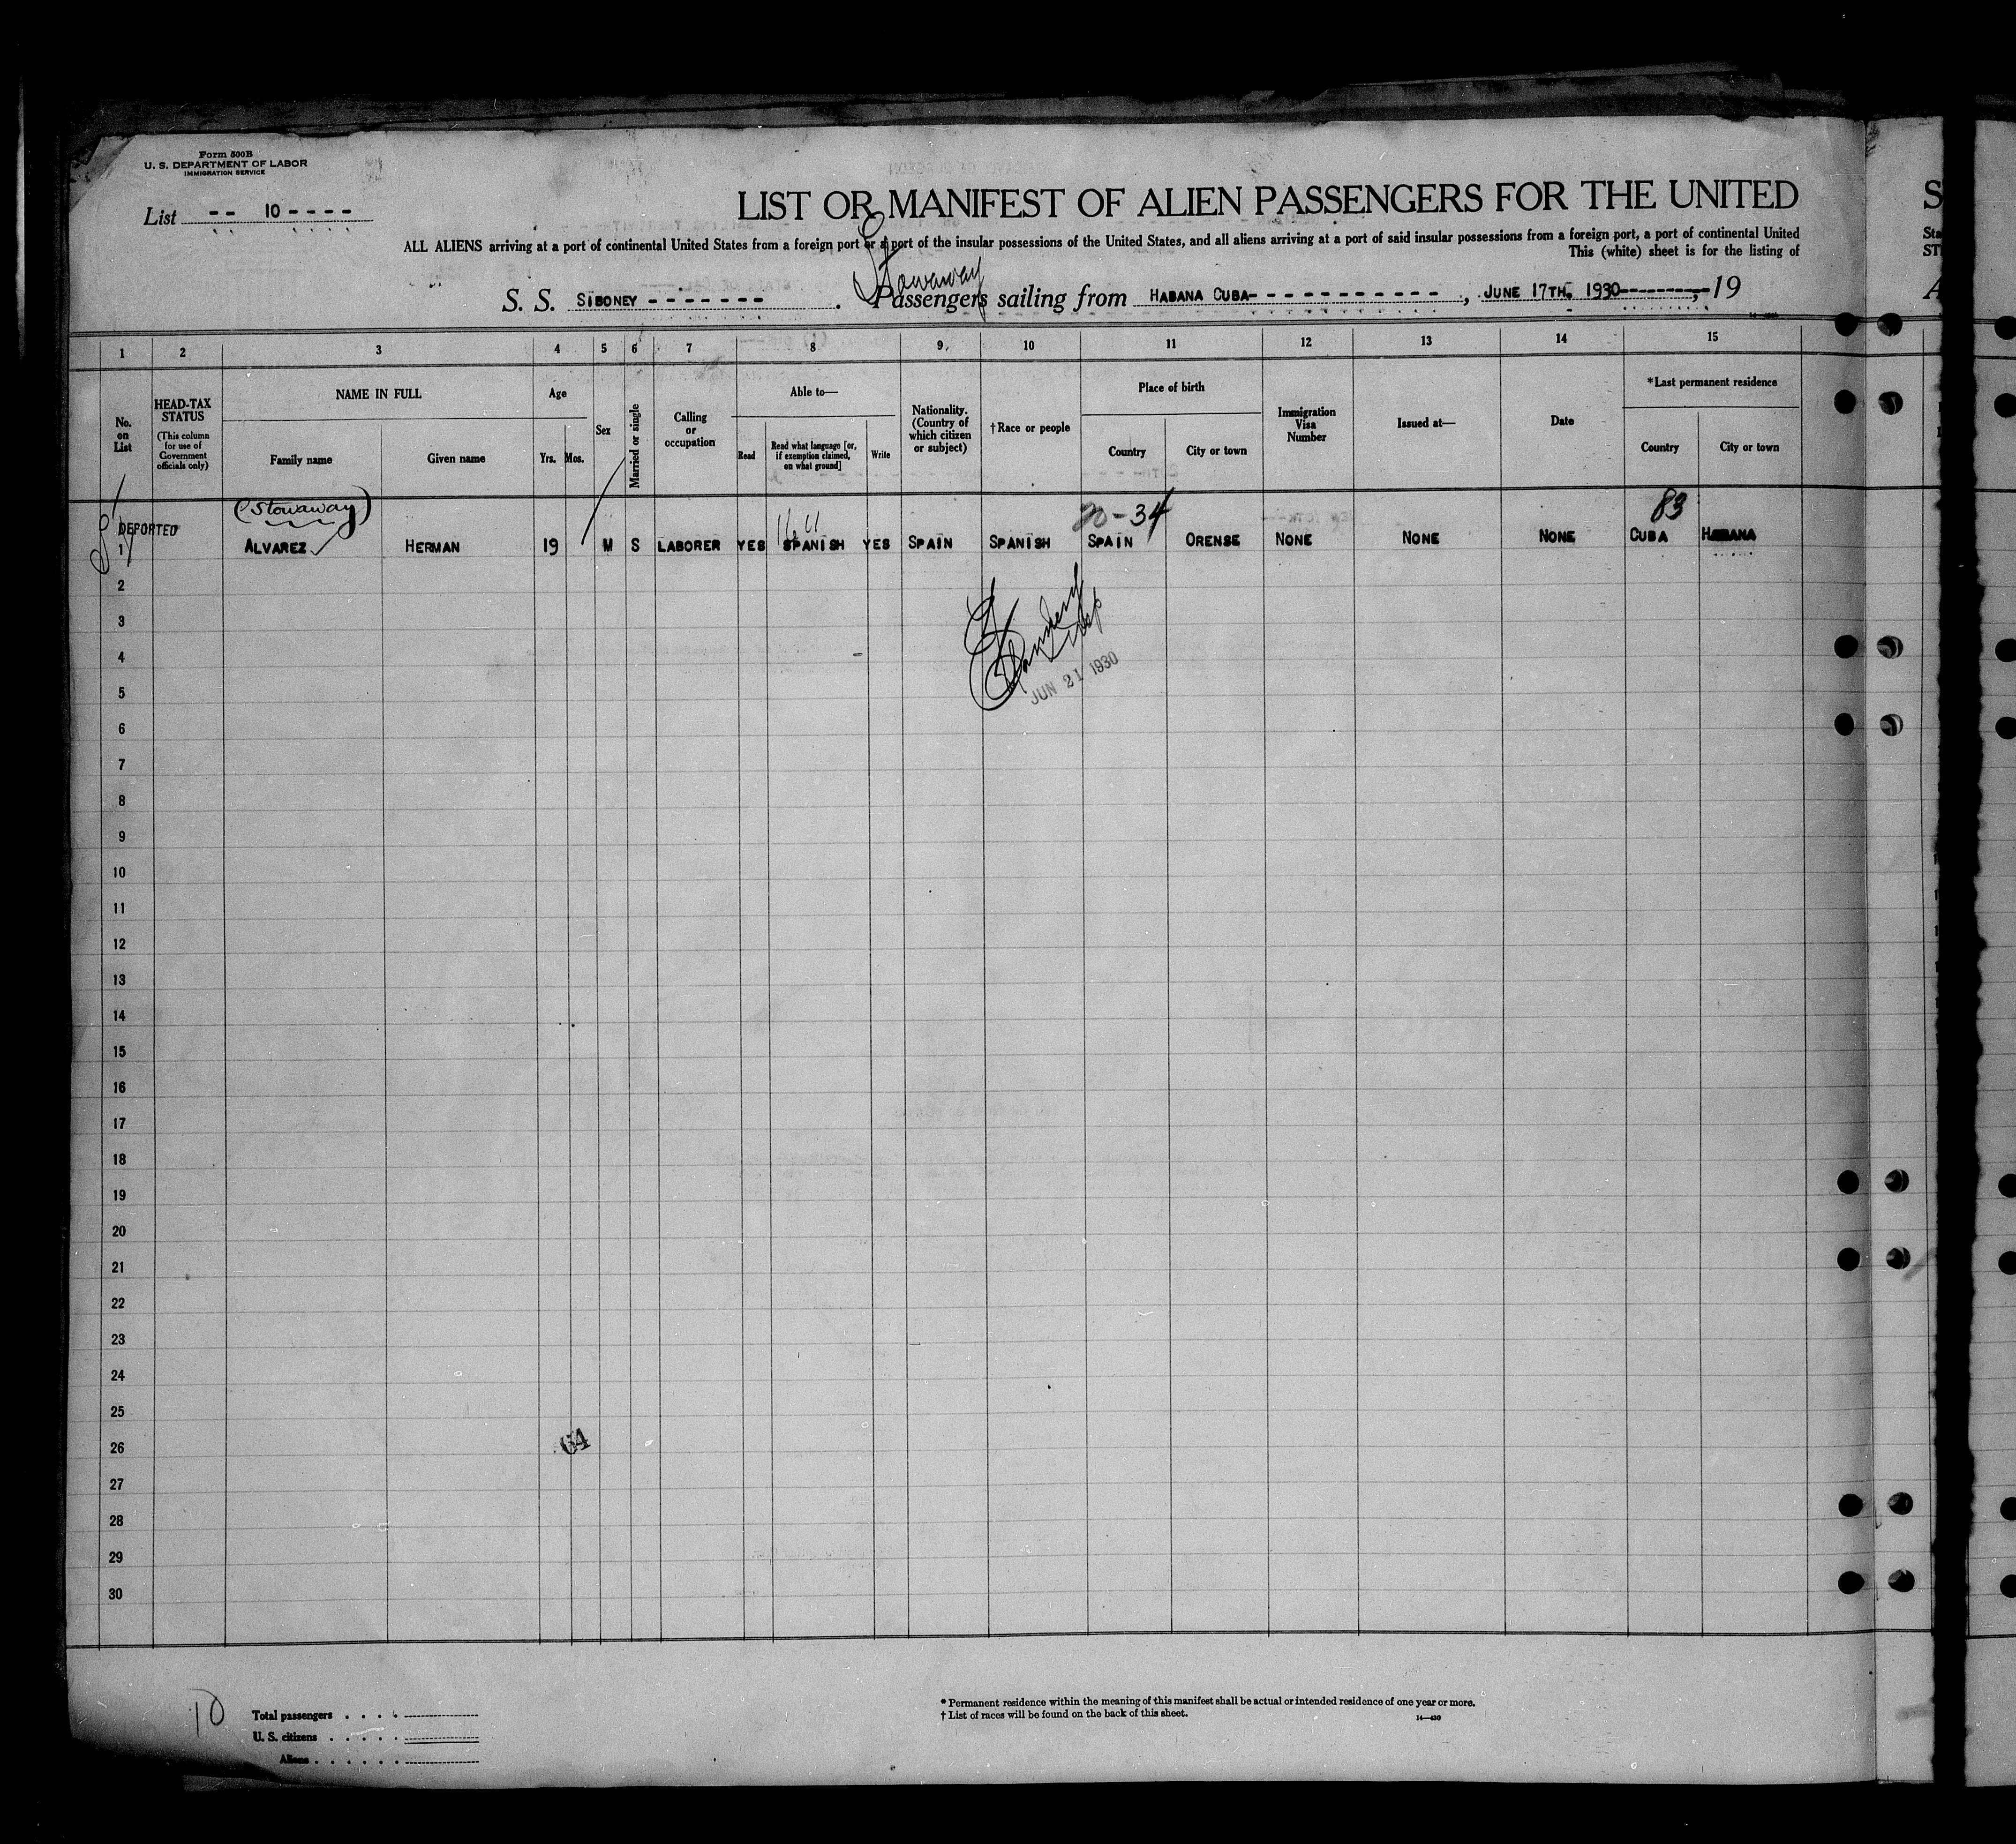 Form 500B
U. S. DEPARTMENT OF LABOR
IMMIGRATION SERVICE
List -- 10 ----
LIST OR MANIFEST OF ALIEN PASSENGERS FOR THE UNITED
ALL ALIENS arriving at a port of continental United States from a foreign port or a port of the insular possessions of the United States, and all aliens arriving at a port of said insular possessions from a foreign port, a port of continental United
This (white) sheet is for the listing of
Stowaway
S. S. SIBONEY ------- . Passengers sailing from HABANA CUBA- - - - - - - - - - - -, JUNE 17TH, 1930--------, 19
1 2 3 4 5 6 7 8 9 10 11 12 13 14 15
No. on List
HEAD-TAX STATUS
(This column for use of Government officials only)
NAME IN FULL
Family name
Given name
Age
Yrs. Mos.
Sex
Married or single
Calling or occupation
Able to—
Read
Read what language [or, if exemption claimed, on what ground]
Write
Nationality. (Country of which citizen or subject)
†Race or people
Place of birth
Country
City or town
Immigration Visa Number
Issued at—
Date
*Last permanent residence
Country
City or town
(Stowaway) 20-34 83
DEPORTED
1 ALVAREZ HERMAN 19 M S LABORER YES SPANISH YES SPAIN SPANISH SPAIN ORENSE NONE NONE NONE CUBA HABANA
2
3
4
JUN 21 1930
5
6
7
8
9
10
11
12
13
14
15
16
17
18
19
20
21
22
23
24
25
26
64
27
28
29
30
10
Total passengers . . . .
U. S. citizens . . . . .
Aliens . . . . . .
* Permanent residence within the meaning of this manifest shall be actual or intended residence of one year or more.
† List of races will be found on the back of this sheet.
14—430